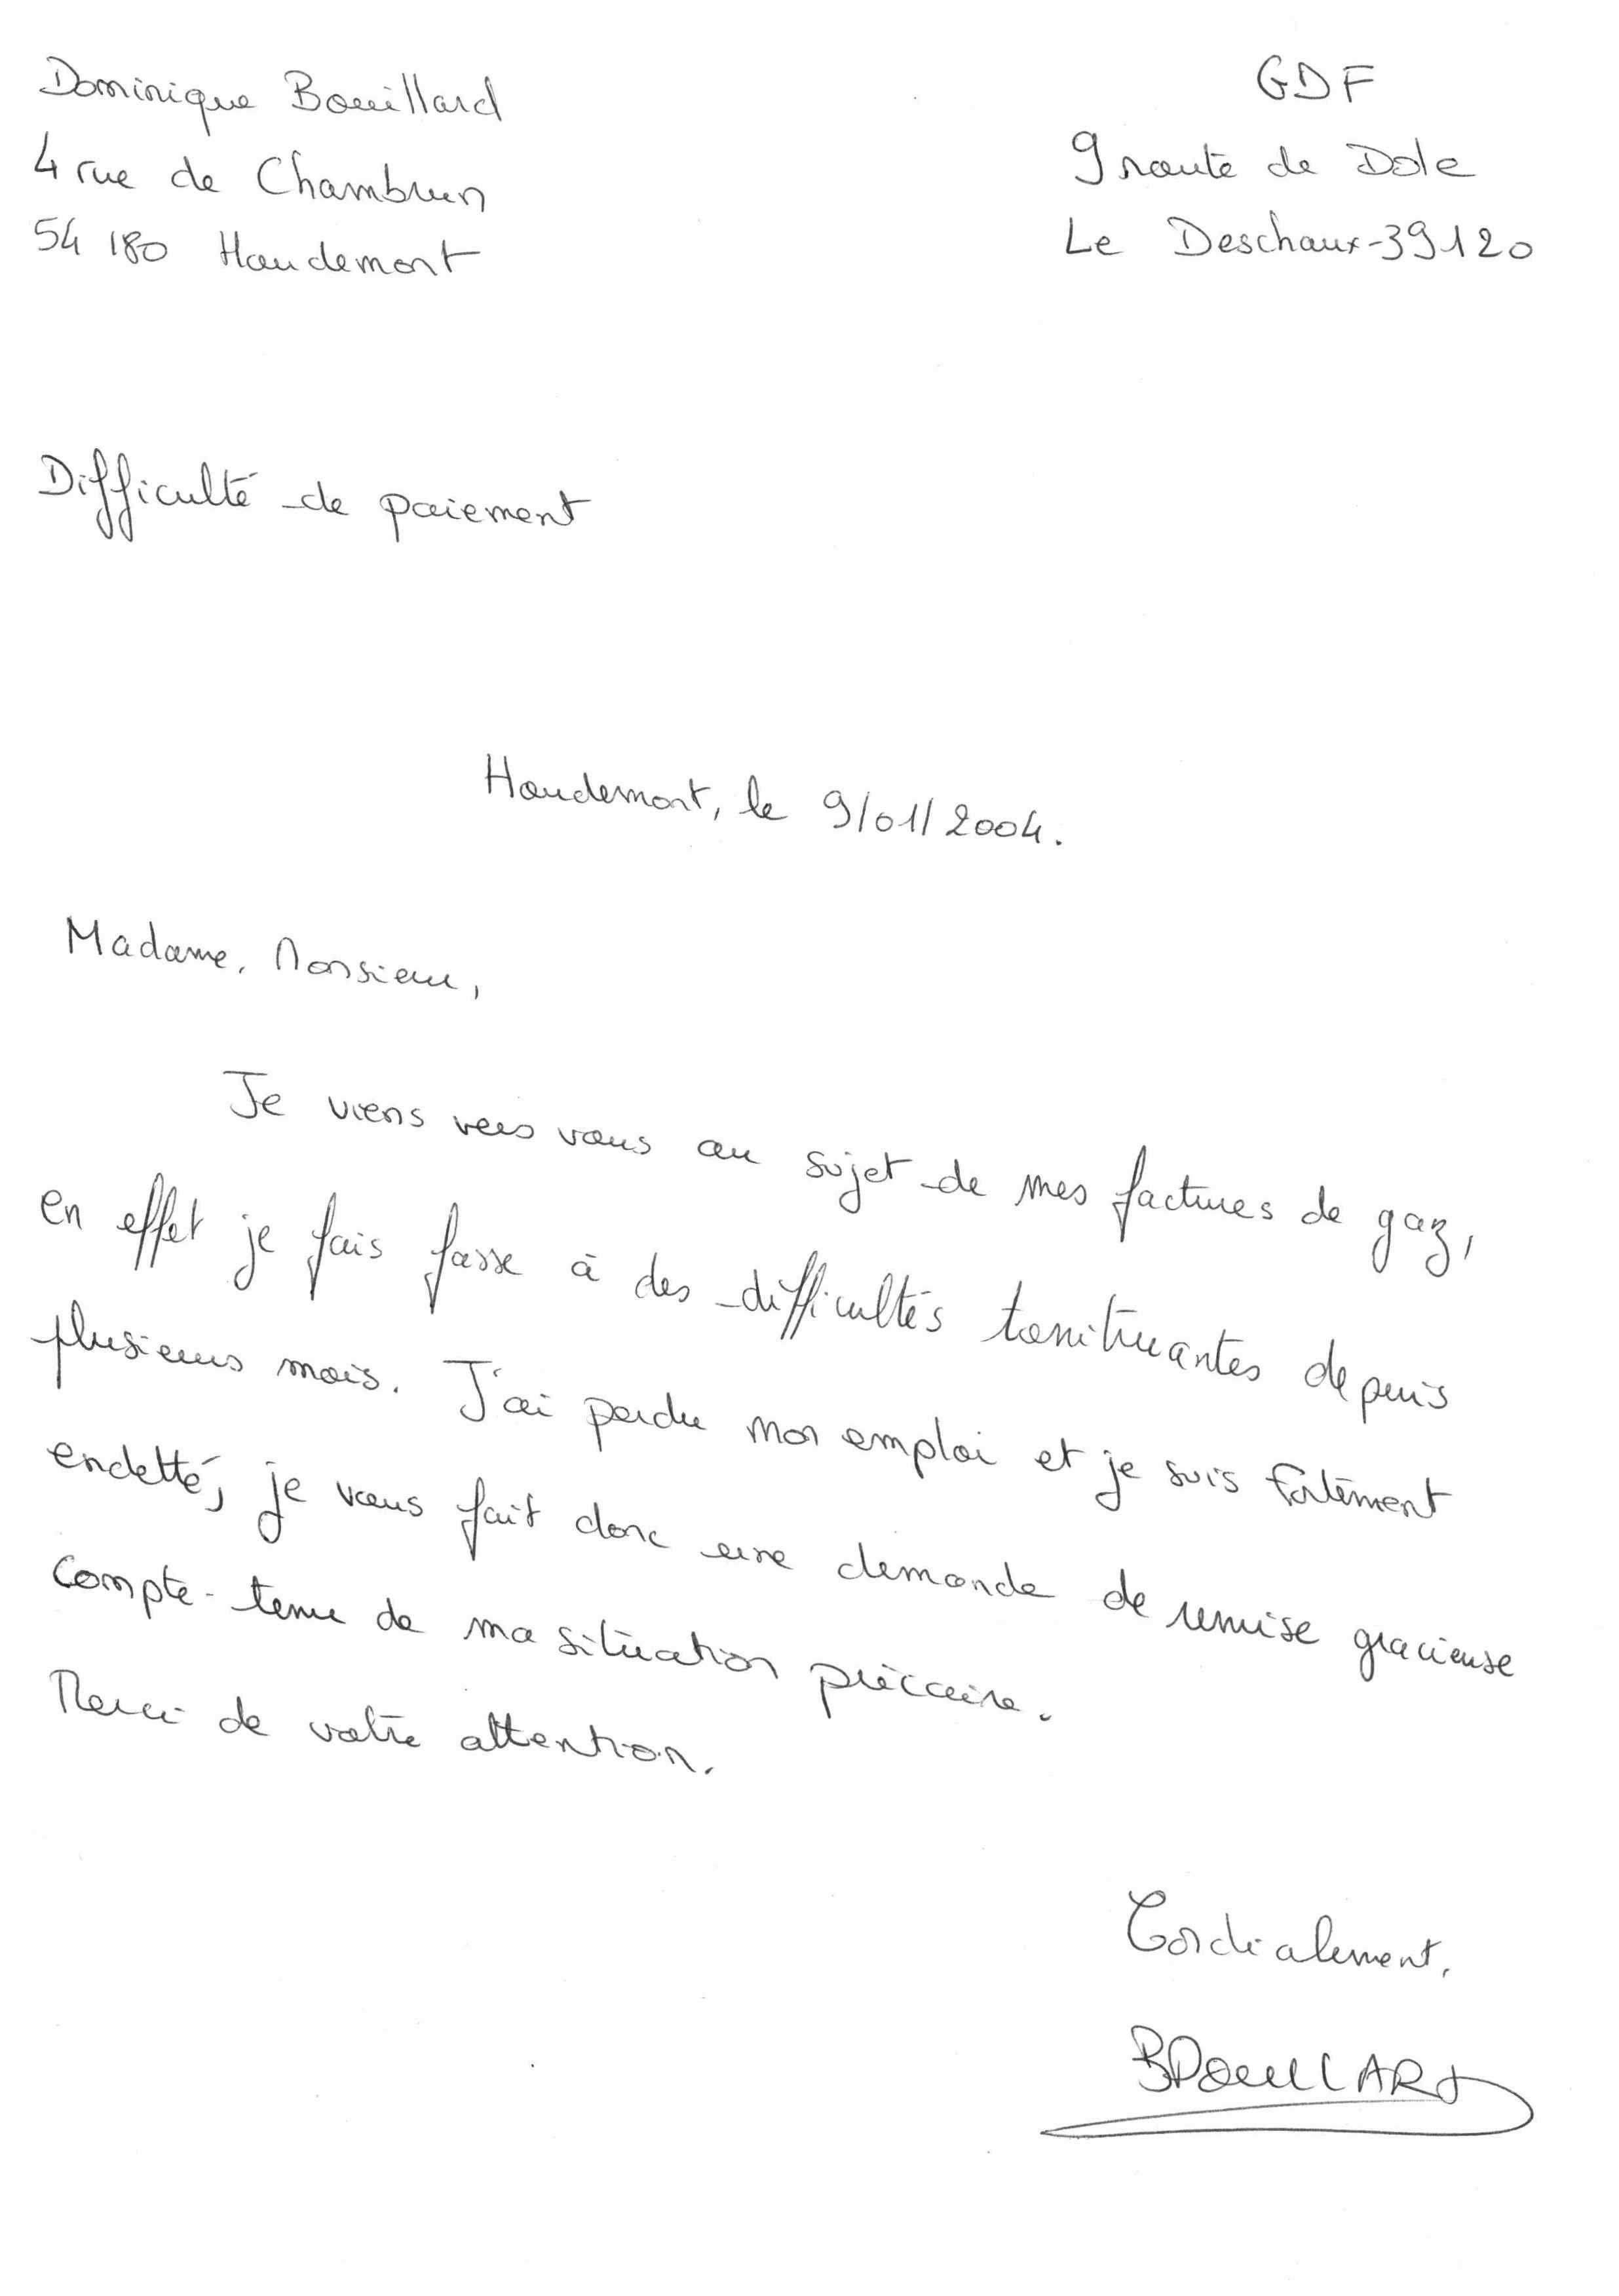 Dominique Bouillard
4 rue de Chambrun
54 180 Houdemont
GDF
9 route de Dole
Le Deschaux-39120
Difficulté de paiement
Houdemont, le 9/01/2004.
Madame, Monsieur,
Je viens vers vous au sujet de mes factures de gaz,
en effet je fais fasse à des difficultés tonitruantes depuis
plusieurs mois. J'ai perdu mon emploi et je suis fortement
endetté, je vous fait donc une demande de remise gracieuse
compte-tenu de ma situation précaire.
Merci de votre attention.
Cordialement,